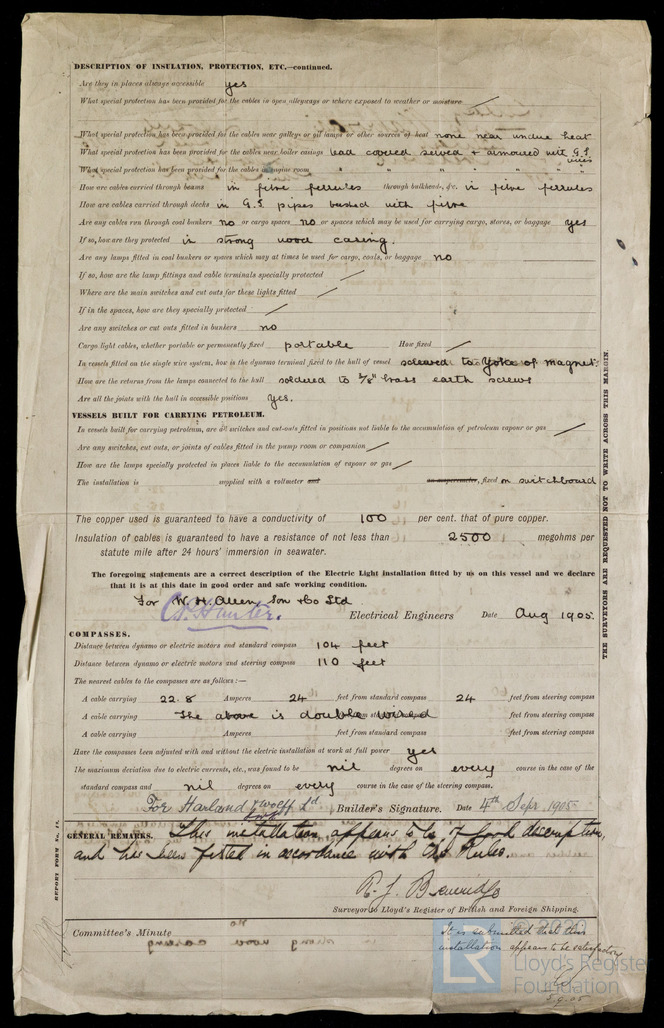 DESCRIPTION OF INSULATION, PROTECTION, ETC.—continued.
Are they in places always accessible yes
What special protection has been provided for the cables in open alleyways or where exposed to weather or moisture /
What special protection has been provided for the cables near galleys or oil lamps or other sources of heat none near undue heat
What special protection has been provided for the cables near boiler casings lead covered served + armoured with G.I. wires
What special protection has been provided for the cables in engine room " " " " " "
How are cables carried through beams in fibre ferrules through bulkheads, &c. in fibre ferrules
How are cables carried through decks in G.I. pipes bushed with fibre
Are any cables run through coal bunkers no or cargo spaces no or spaces which may be used for carrying cargo, stores, or baggage yes
If so, how are they protected in strong wood casing.
Are any lamps fitted in coal bunkers or spaces which may at times be used for cargo, coals, or baggage no
If so, how are the lamp fittings and cable terminals specially protected /
Where are the main switches and cut outs for these lights fitted /
If in the spaces, how are they specially protected /
Are any switches or cut outs fitted in bunkers no
Cargo light cables, whether portable or permanently fixed portable How fixed /
In vessels fitted on the single wire system, how is the dynamo terminal fixed to the hull of vessel screwed to Yoke of magnet.
How are the returns from the lamps connected to the hull soldered to 3/8" brass earth screws
Are all the joints with the hull in accessible positions yes.
VESSELS BUILT FOR CARRYING PETROLEUM.
In vessels built for carrying petroleum, are all switches and cut-outs fitted in positions not liable to the accumulation of petroleum vapour or gas /
Are any switches, cut outs, or joints of cables fitted in the pump room or companion /
How are the lamps specially protected in places liable to the accumulation of vapour or gas /
The installation is supplied with a voltmeter and an amperemeter, fixed on switchboard
The copper used is guaranteed to have a conductivity of 100 per cent. that of pure copper.
Insulation of cables is guaranteed to have a resistance of not less than 2500 megohms per
statute mile after 24 hours' immersion in seawater.
The foregoing statements are a correct description of the Electric Light installation fitted by us on this vessel and we declare
that it is at this date in good order and safe working condition.
For W. H. Allen Son & Co Ltd
Hunter. Electrical Engineers Date Aug 1905.
COMPASSES.
Distance between dynamo or electric motors and standard compass 104 feet
Distance between dynamo or electric motors and steering compass 110 feet
The nearest cables to the compasses are as follows:—
A cable carrying 22.8 Amperes 24 feet from standard compass 24 feet from steering compass
A cable carrying The above is double wired feet from standard compass feet from steering compass
A cable carrying Amperes feet from standard compass feet from steering compass
Have the compasses been adjusted with and without the electric installation at work at full power yes
The maximum deviation due to electric currents, etc., was found to be nil degrees on every course in the case of the
standard compass and nil degrees on every course in the case of the steering compass.
For Harland & Wolff Ld Builder's Signature. Date 4th Sepr 1905
GENERAL REMARKS. This installation appears to be of good description,
and has been fitted in accordance with the Rules.
Surveyor to Lloyd's Register of British and Foreign Shipping.
Committee's Minute
It is submitted that this
installation appears to be satisfactory
5.9.05
THE SURVEYORS ARE REQUESTED NOT TO WRITE ACROSS THIS MARGIN.
REPORT FORM No. 17.
LR
Lloyd's Register
Foundation